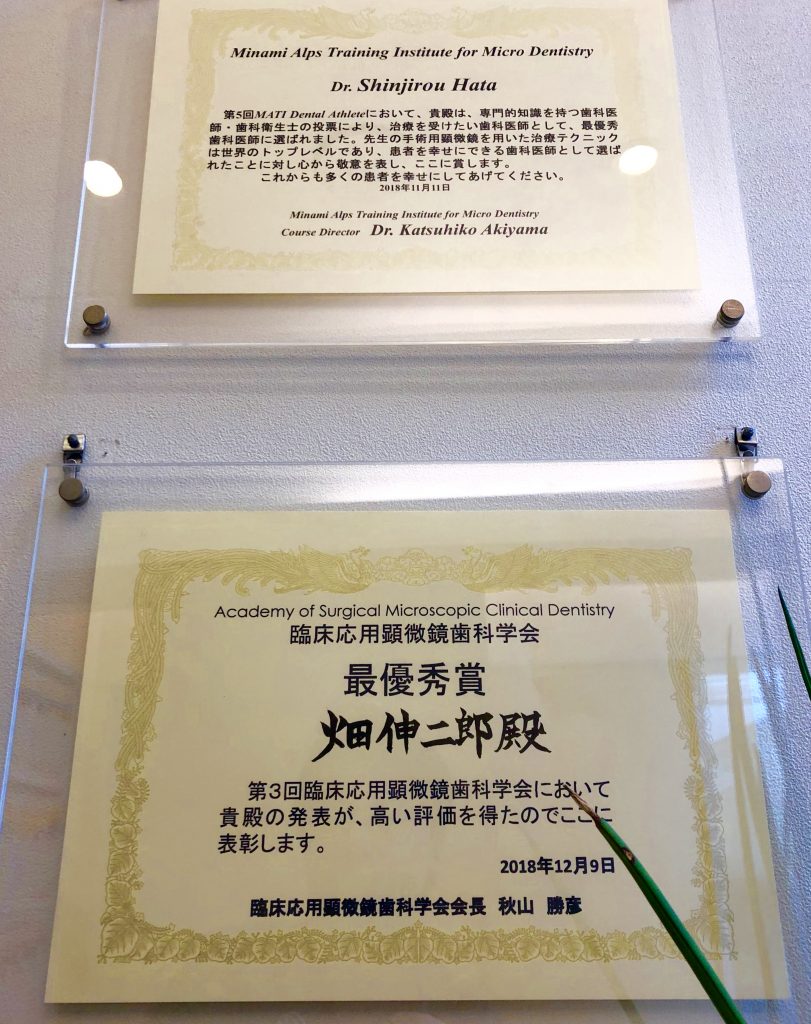 Minami Alps Training Institute for Micro Dentistry
Dr. Shinjirou Hata
第5回MATI Dental Athleteにおいて、貴殿は、専門的知識を持つ歯科医
師・歯科衛生士の投票により、治療を受けたい歯科医師として、最優秀
歯科医師に選ばれました。先生の手術用顕微鏡を用いた治療テクニック
は世界のトップレベルであり、患者を幸せにできる歯科医師として選ば
れたことに対し心から敬意を表し、ここに賞します。
これからも多くの患者を幸せにしてあげてください。
2018年11月11日
Minami Alps Training Institute for Micro Dentistry
Course Director Dr. Katsuhiko Akiyama
Academy of Surgical Microscopic Clinical Dentistry
臨床応用顕微鏡歯科学会
最優秀賞
畑伸二郎殿
第3回臨床応用顕微鏡歯科学会において
貴殿の発表が、高い評価を得たのでここに
表彰します。
2018年12月9日
臨床応用顕微鏡歯科学会会長 秋山 勝彦